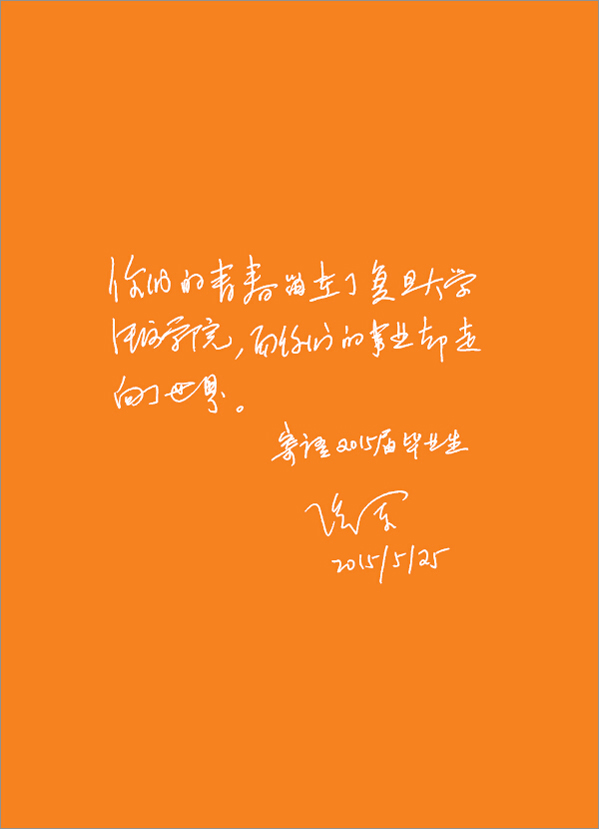 你们的青春留在了复旦大学
经济学院，而你们的事业却走
向了世界。
寄语2015届毕业生
张军
2015/5/25